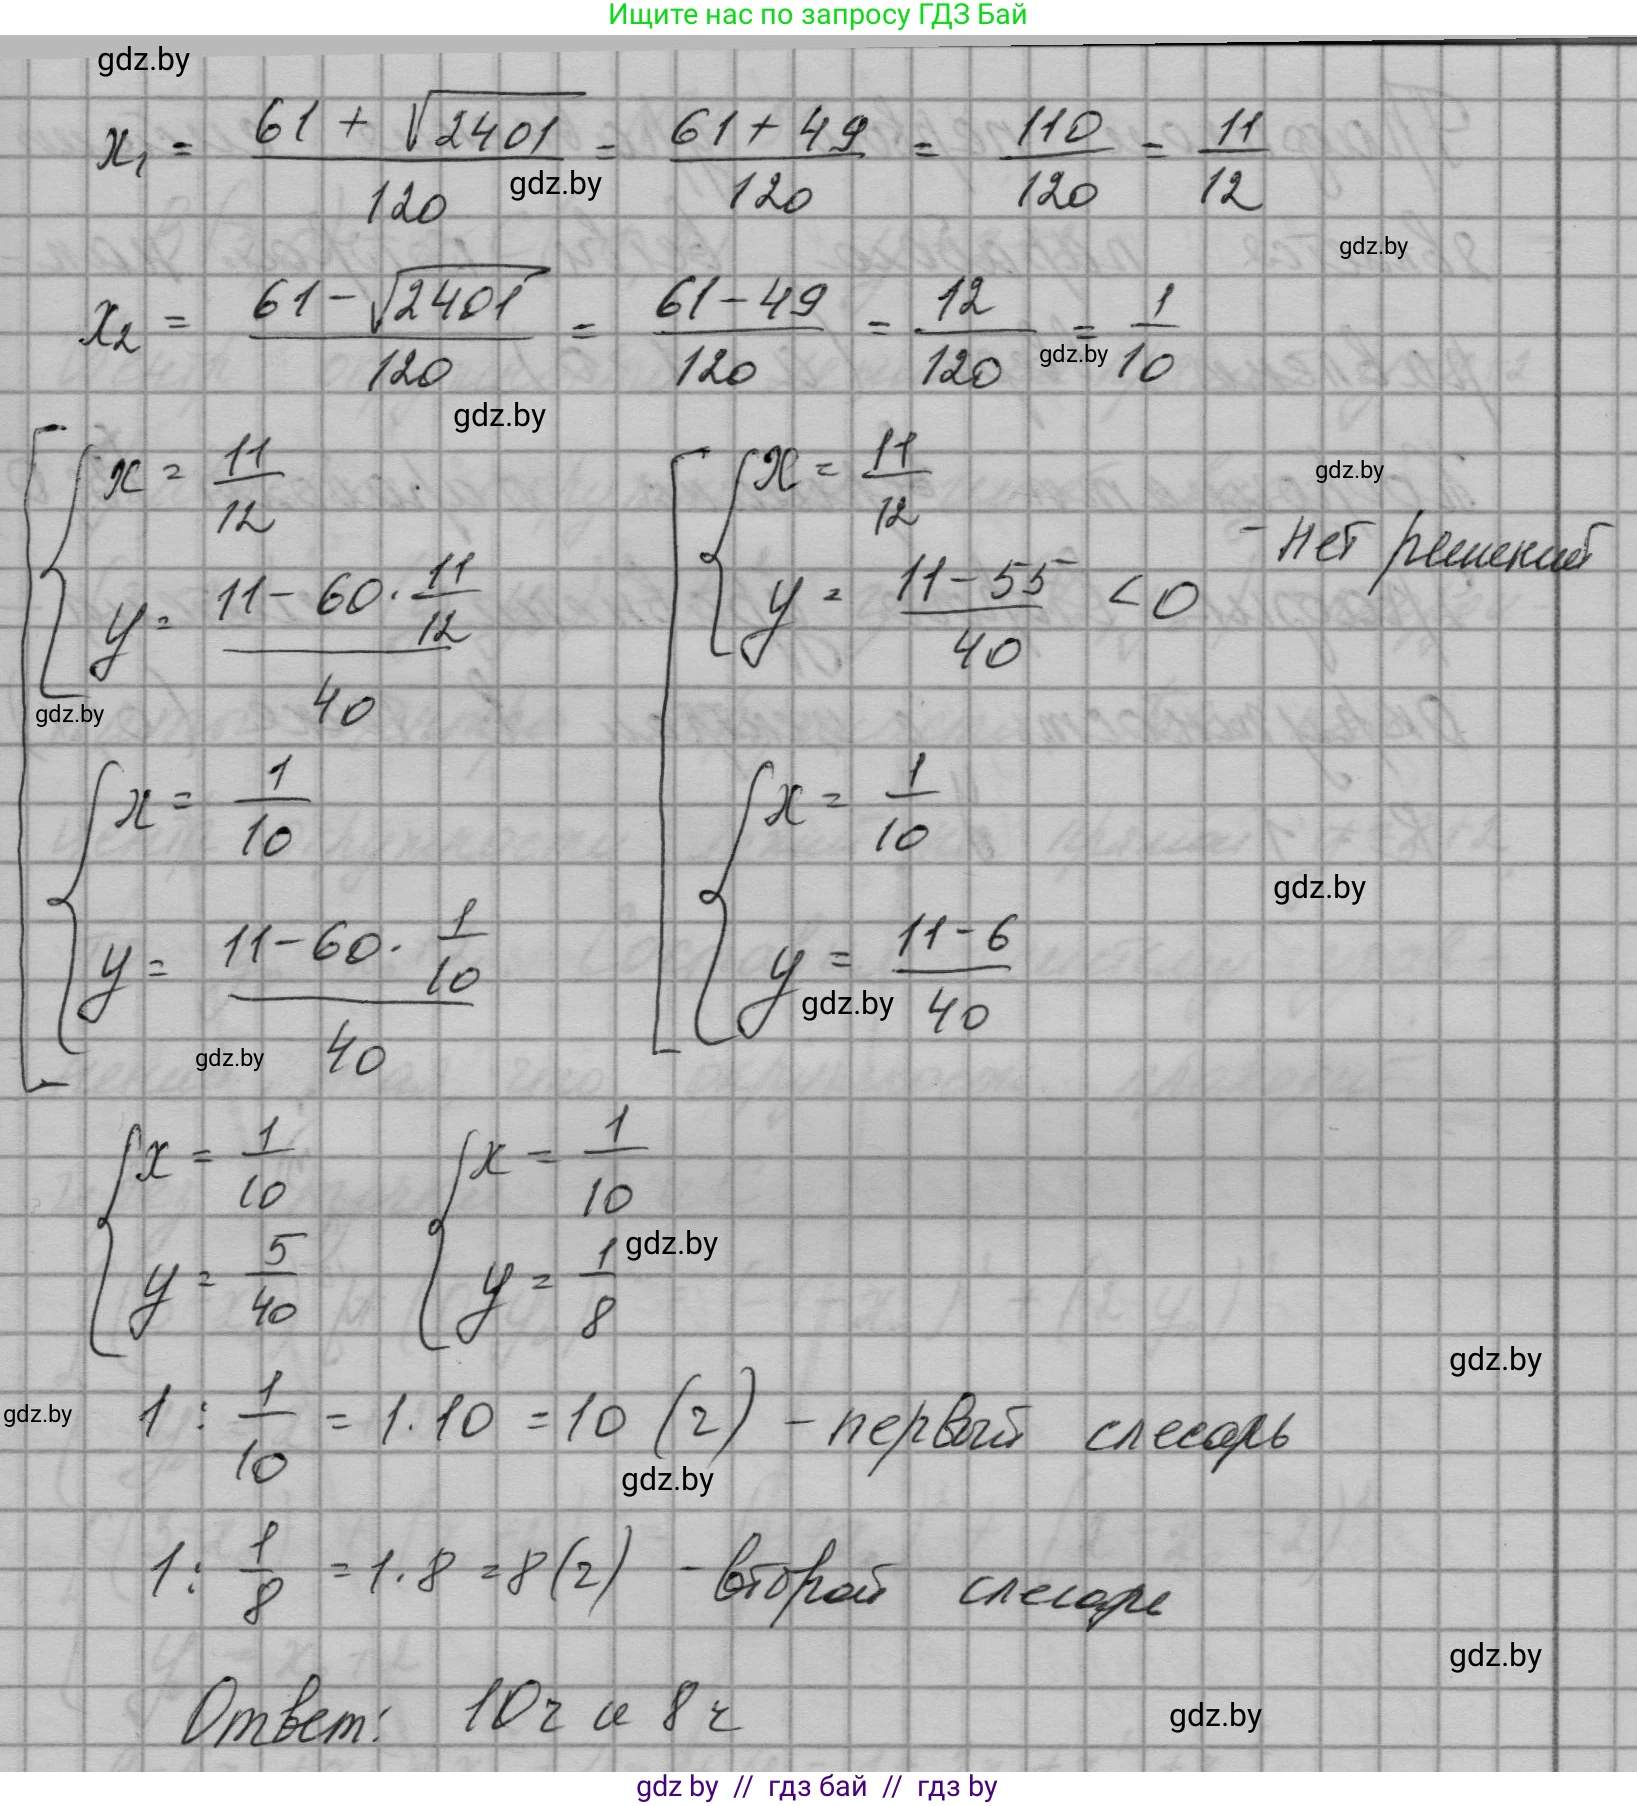 Ищите нас по запросу ГДЗ Бай
gdz.by
x₁ = (61 + √2401)/120 = (61 + 49)/120 = 110/120 = 11/12
gdz.by
gdz.by
x₂ = (61 - √2401)/120 = (61 - 49)/120 = 12/120 = 1/10
gdz.by
gdz.by
[ { x = 11/12
y = (11 - 60 · 11/12)/40
{ x = 1/10
y = (11 - 60 · 1/10)/40
[ { x = 11/12
y = (11 - 55)/40 < 0 - нет решений
{ x = 1/10
y = (11 - 6)/40
gdz.by
gdz.by
gdz.by
gdz.by
gdz.by
{ x = 1/10
y = 5/40
{ x = 1/10
y = 1/8
gdz.by
gdz.by
gdz.by
1 : 1/10 = 1 · 10 = 10 (ч) - первый слесарь
gdz.by
1 : 1/8 = 1 · 8 = 8 (ч) - второй слесарь
gdz.by
Ответ: 10ч и 8ч
gdz.by
gdz by // гдз бай // гдз by